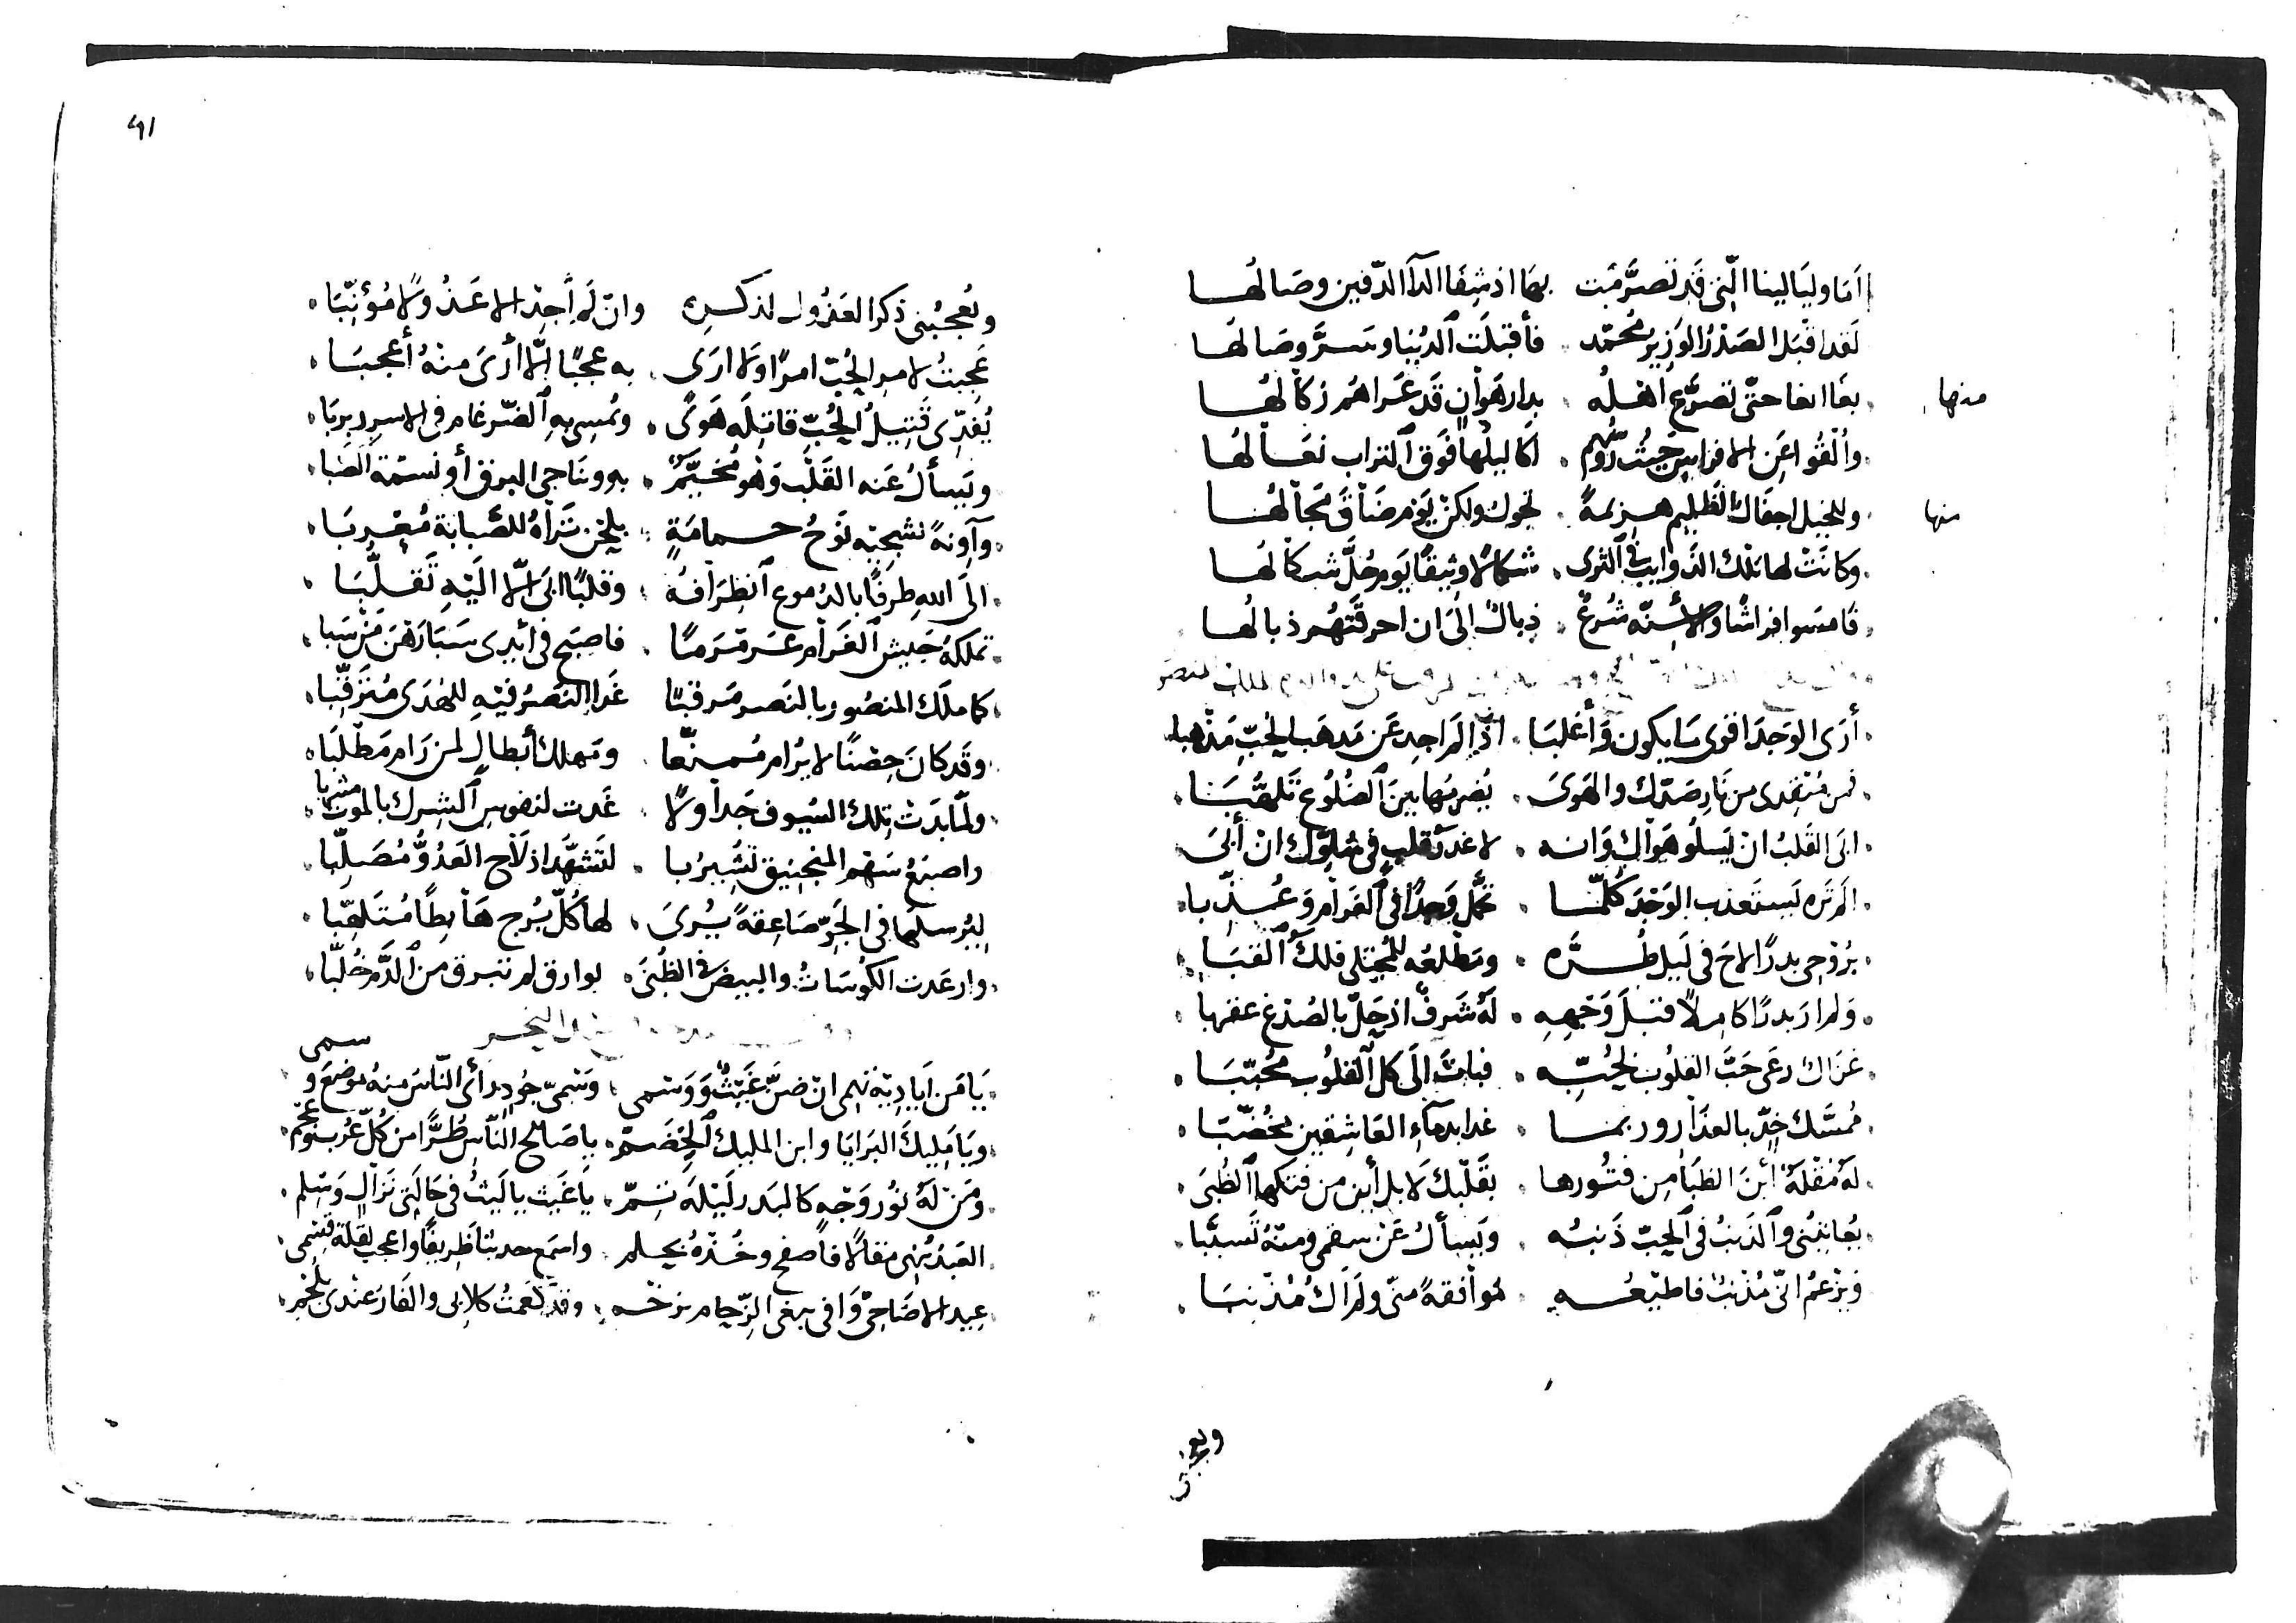 أما وليالينا التي قد تصرمت بها اذ شفا الدآ الدفين وصالها
لقد اقبل الصدر الوزير محمد فأقبلت الدنيا وسر وصالها
منها
بغا ابغا حتى تصرع اهله بدار هوان قد عراهم زكالها
وألقوا عن الافرابيس حيث رؤسهم اكاليلها فوق التراب نعالها
منها
وللخيل اجفال الظليم هزيمة تجول ولكن يوم ضاق مجالها
وكانت لها تلك الذوايب في الثرى شكالا وثيقا يوم حل شكالها
فامسوا فراشا والاسنة شرع ذبال الى ان احرقتهم ذبالها
أرى الوجد اقوى ما يكون وأغلبا اذا لم اجد عن مذهب الحب مذهبا
فمن منقذى من نار صدك والهوى يضرمها بين الضلوع تلهبا
ابى القلب ان يسلو هواك وانه لا غدر قلب في سلوك ان أبى
الم تره يستعذب الوجد كلما تحمل وجدا في الغرام وعذبا
بروحى بدرا لاح في ليل طره ومطلعه للمجتلى فلك القبا
ولم ار بدرا كاملا قبل وجهه له شرف اذ حل بالصدغ عقربا
غزال رعى حب القلوب لحبه فبات الى كل القلوب محببا
ممسك خد بالعذار وربما غدا بدمآء العاشقين مخضبا
له مقلة أين الظبا من فتورها بقلبك لا بل أين من فتكها الظبى
يعاتبنى والذنب في الحب ذنبه ويسأل عن سقمى ومنه تسببا
ويزعم انى مذنب فاطيعه موافقة منى ولم اك مذنبا
ويعجبنى
٤١
ويعجبنى ذكر العذول لذكره وان لم أجد الا عذولا مؤنبا
عجبت لامر الحب امرا ولا ارى به عجبا الا أرى منه أعجبا
يفدى قتيل الحب قاتله هوى ويمسى به الضرغام في الاسر ربربا
ويسأل عنه القلب وهو مخيم به ويناجى البرق أو نسمة الصبا
وآونة تشجيه نوح حمامة بلحن تراه للصبابة معربا
الى الله طرفا بالدموع انطرافه وقلبا ابى الا اليه تقلبا
تملكه جيش الغرام عرمرما فاصبح في ايدى سبا رهن من سبا
كما ملك المنصور بالنصر مرقبا غدا النصر فيه للهدى مترقبا
وقد كان حصنا لا يرام ممنعا ومهلك أبطال لمن رام مطلبا
ولما بدت تلك السيوف جداولا غدت لنفوس الشرك بالموت مشربا
واصبع سهم المنجنيق تشير با لتشهد اذ لاح العدو مصلبا
ليرسلها في الجو صاعقة يرى لها كل برج هابطا متلهبا
وارعدت الكوسات والبيض في الظبى بوارق لم تبرق من الدم خلبا
يا من اياديه تهمى ان ضن غيث ووسمى وسمى جود رأى الناس منه موضع وسمى
ويا مليك البرايا وابن المليك الخضم يا صالح الناس طرا من كل عرب وعجم
ومن له نور وجه كالبدر ليلة تم يا غيث يا ليث في حالتى نزال وسلم
العبد ينهى مقالا فاصفح وخذه بحلم واسمع حديثا ظريفا واعجب لقلة قسمى
عيد الاضاحى وافى يبغى الزحام بزخمه وقد نعمت كلابى والفار عندى بلحم